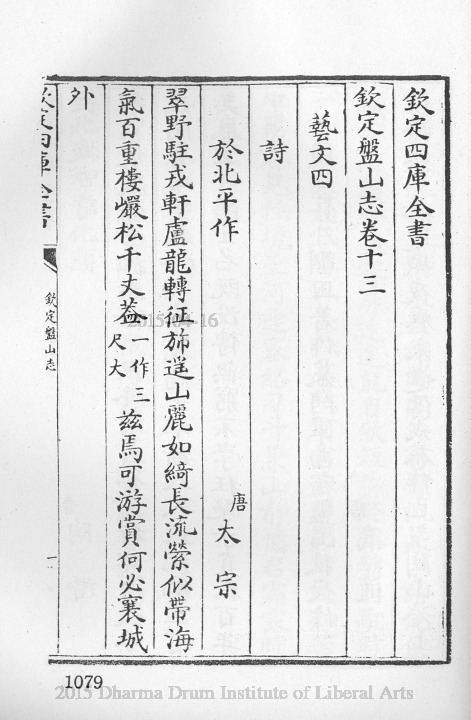 欽定四庫全書
欽定盤山志卷十三
藝文四
詩
於北平作
唐 太宗
翠野駐戎軒盧龍轉征斾遥山麗如綺長流縈似帶海
氣百重樓巖松千丈葢一作三尺大兹焉可游賞何必襄城
外
欽定四庫全書
欽定盤山志
一
1079
2015-04-16
2015 Dharma Drum Institute of Liberal Arts